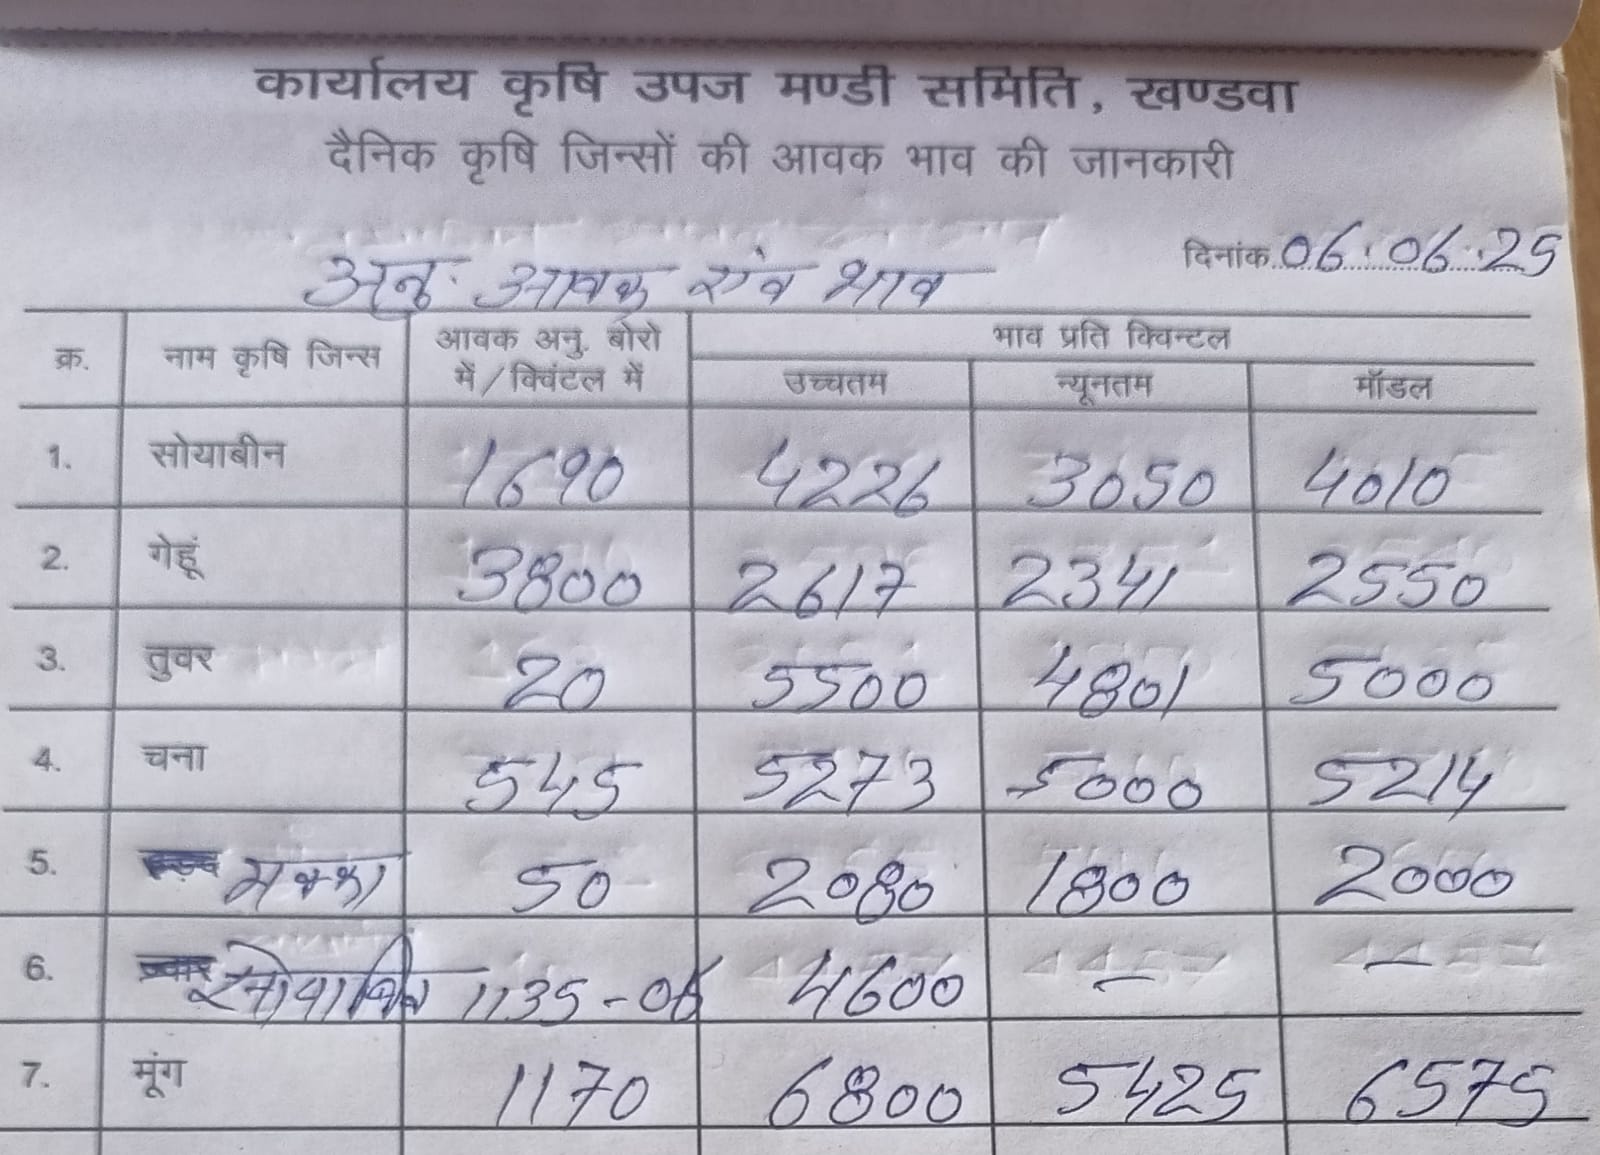 कार्यालय कृषि उपज मण्डी समिति, खण्डवा
दैनिक कृषि जिन्सों की आवक भाव की जानकारी
दिनांक 06.06.25
अनु. आवक एंव भाव
क्र. नाम कृषि जिन्स आवक अनु. बोरो में/क्विंटल में भाव प्रति क्विन्टल
उच्चतम न्यूनतम मॉडल
1. सोयाबीन 1690 4226 3050 4010
2. गेहूं 3800 2617 2341 2550
3. तुवर 20 5500 4801 5000
4. चना 545 5273 5000 5214
5. मक्का 50 2080 1800 2000
6. ज्वार सोयाबिन 1135-06 4600 — —
7. मूंग 1170 6800 5425 6575